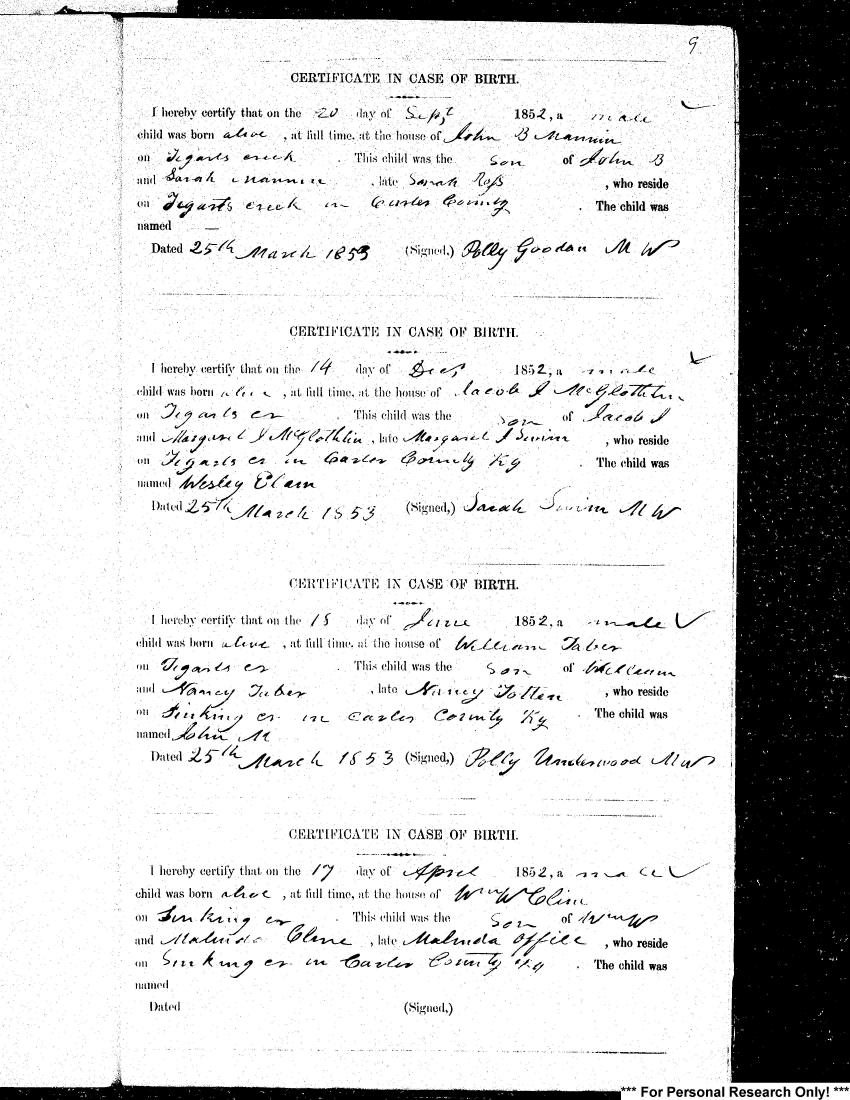 9
CERTIFICATE IN CASE OF BIRTH.
I hereby certify that on the 20 day of Sept 1852, a male
child was born alive , at full time, at the house of John B Mannin
on Tygarts creek . This child was the son of John B
and Sarah Mannin , late Sarah Ross , who reside
on Tygarts creek in Carter County . The child was
named —
Dated 25th March 1853 (Signed,) Polly Goodan M W
CERTIFICATE IN CASE OF BIRTH.
I hereby certify that on the 14 day of Dec, 1852, a male
child was born alive , at full time, at the house of Jacob J McGlothlin
on Tygarts cr . This child was the son of Jacob J
and Margaret J McGlothlin , late Margaret J Swim , who reside
on Tygarts cr in Carter County Ky . The child was
named Wesley Elam
Dated 25th March 1853 (Signed,) Sarah Swim M W
CERTIFICATE IN CASE OF BIRTH.
I hereby certify that on the 15 day of June 1852, a male
child was born alive , at full time, at the house of William Taber
on Tygarts cr . This child was the son of William
and Nancy Taber , late Nancy Totten , who reside
on Sinking cr in Carter County Ky . The child was
named John M
Dated 25th March 1853 (Signed,) Polly Underwood M W
CERTIFICATE IN CASE OF BIRTH.
I hereby certify that on the 17 day of April 1852, a male
child was born alive , at full time, at the house of Wm W Cline
on Sinking cr . This child was the son of Wm W
and Malinda Cline , late Malinda Offill , who reside
on Sinking cr in Carter County Ky . The child was
named
Dated (Signed,)
*** For Personal Research Only! ***